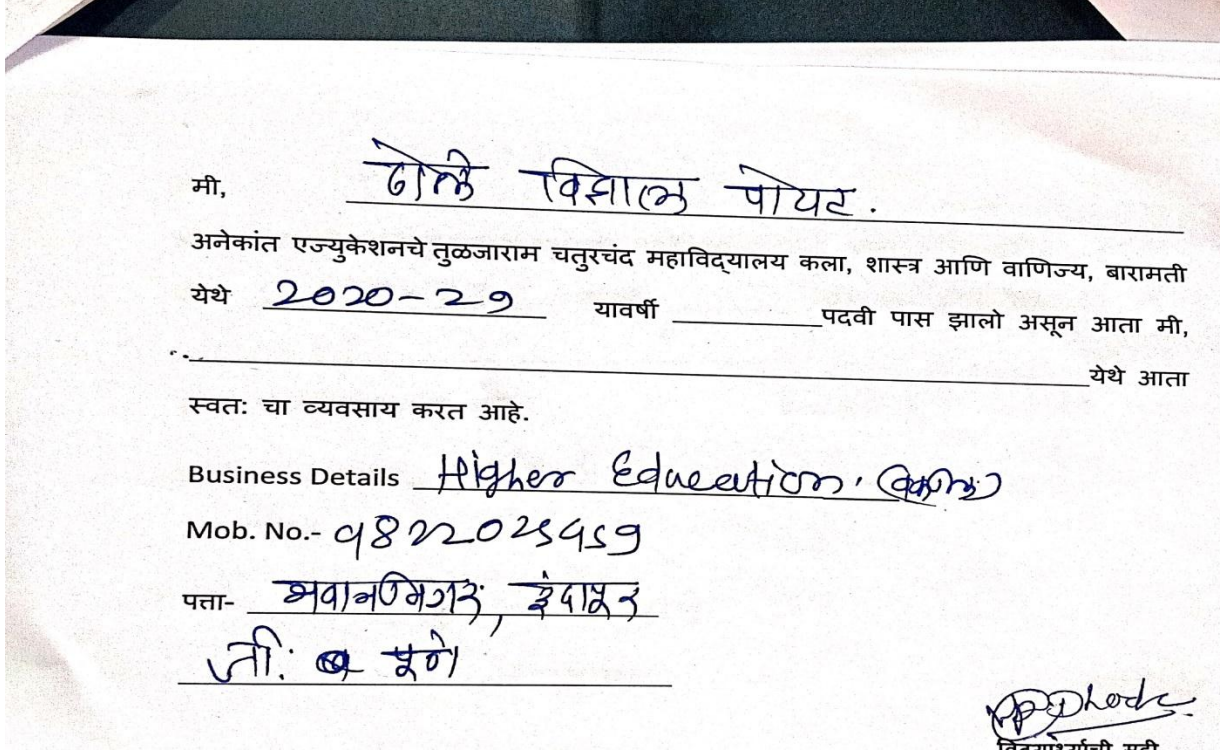 मी, ढोले विशाल पोपट.
अनेकांत एज्युकेशनचे तुळजाराम चतुरचंद महाविद्यालय कला, शास्त्र आणि वाणिज्य, बारामती
येथे 2020-29 यावर्षी __________ पदवी पास झालो असून आता मी,
__________ येथे आता
स्वत: चा व्यवसाय करत आहे.
Business Details Higher Education.
Mob. No.-
पत्ता- भवानीनगर, इंदापूर
जी. पूणे
विद्यार्थ्याची सही